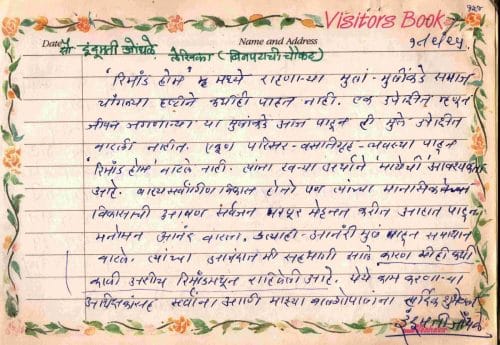 Visitors Book
Date सौ. इंदूमती जोंधळे Name and Address
लेखिका (बिनपटाची चौकट)
'रिमांड होम' मध्ये राहणाऱ्या मुलां-मुलींकडे समाज
चांगल्या दृष्टीने कधीही पाहत नाही. एक उपेक्षित म्हणून
जीवन जगणाऱ्या या मुलांकडे आज पाहून ही मुले उपेक्षित
वाटली नाहीत. एकूण परिसर-वसतिगृह-व्यवस्था पाहून
'रिमांड होम' वाटले नाही. त्यांना खऱ्या अर्थाने 'मायेची' आवश्यकता
आहे. सर्वांगीण विकास होतो पण त्यांच्या मानसिक
विकासाची आपण सर्वजण भरपूर मेहनत करीत आहात पाहून
मनोमन आनंद वाटला. आनंदी मुलं पाहून समाधान
वाटले. त्यांच्या मी सहभागी झाले कारण मीही कधी
काळी अशीच रिमांडमधून राहिलेली आहे. येथे काम करणाऱ्या
अधिक्षकांसह सर्वांना आणि माझ्या बाळगोपाळांना हार्दिक शुभेच्छा
इंदूमती जोंधळे